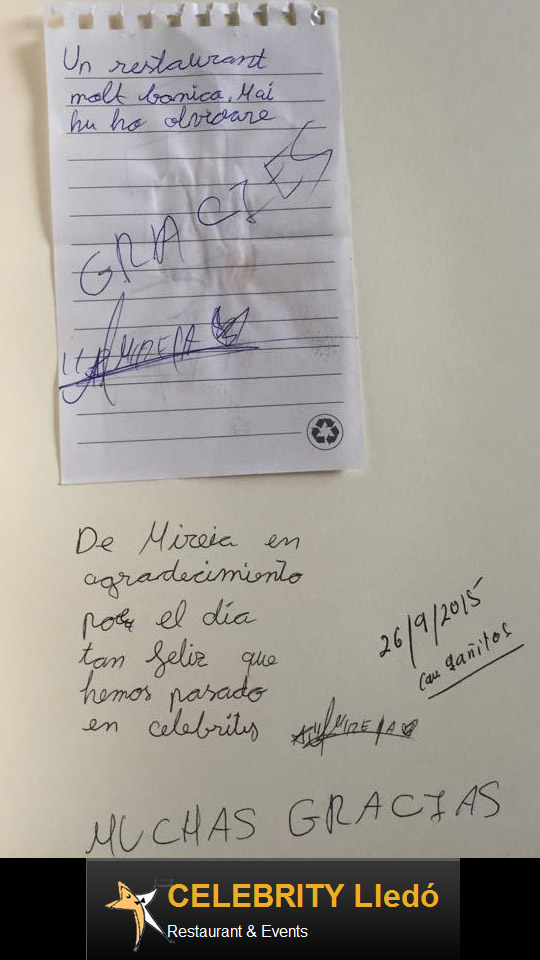 Un restaurant
molt bonica. Mai
hu ho olvidare
GRACIES
MIREIA
De Mireia en
agradecimiento
por el día
tan feliz que
hemos pasado
en celebritys
MIREIA
26/9/2015
Cau gañitos
MUCHAS GRACIAS
CELEBRITY Lledó
Restaurant & Events